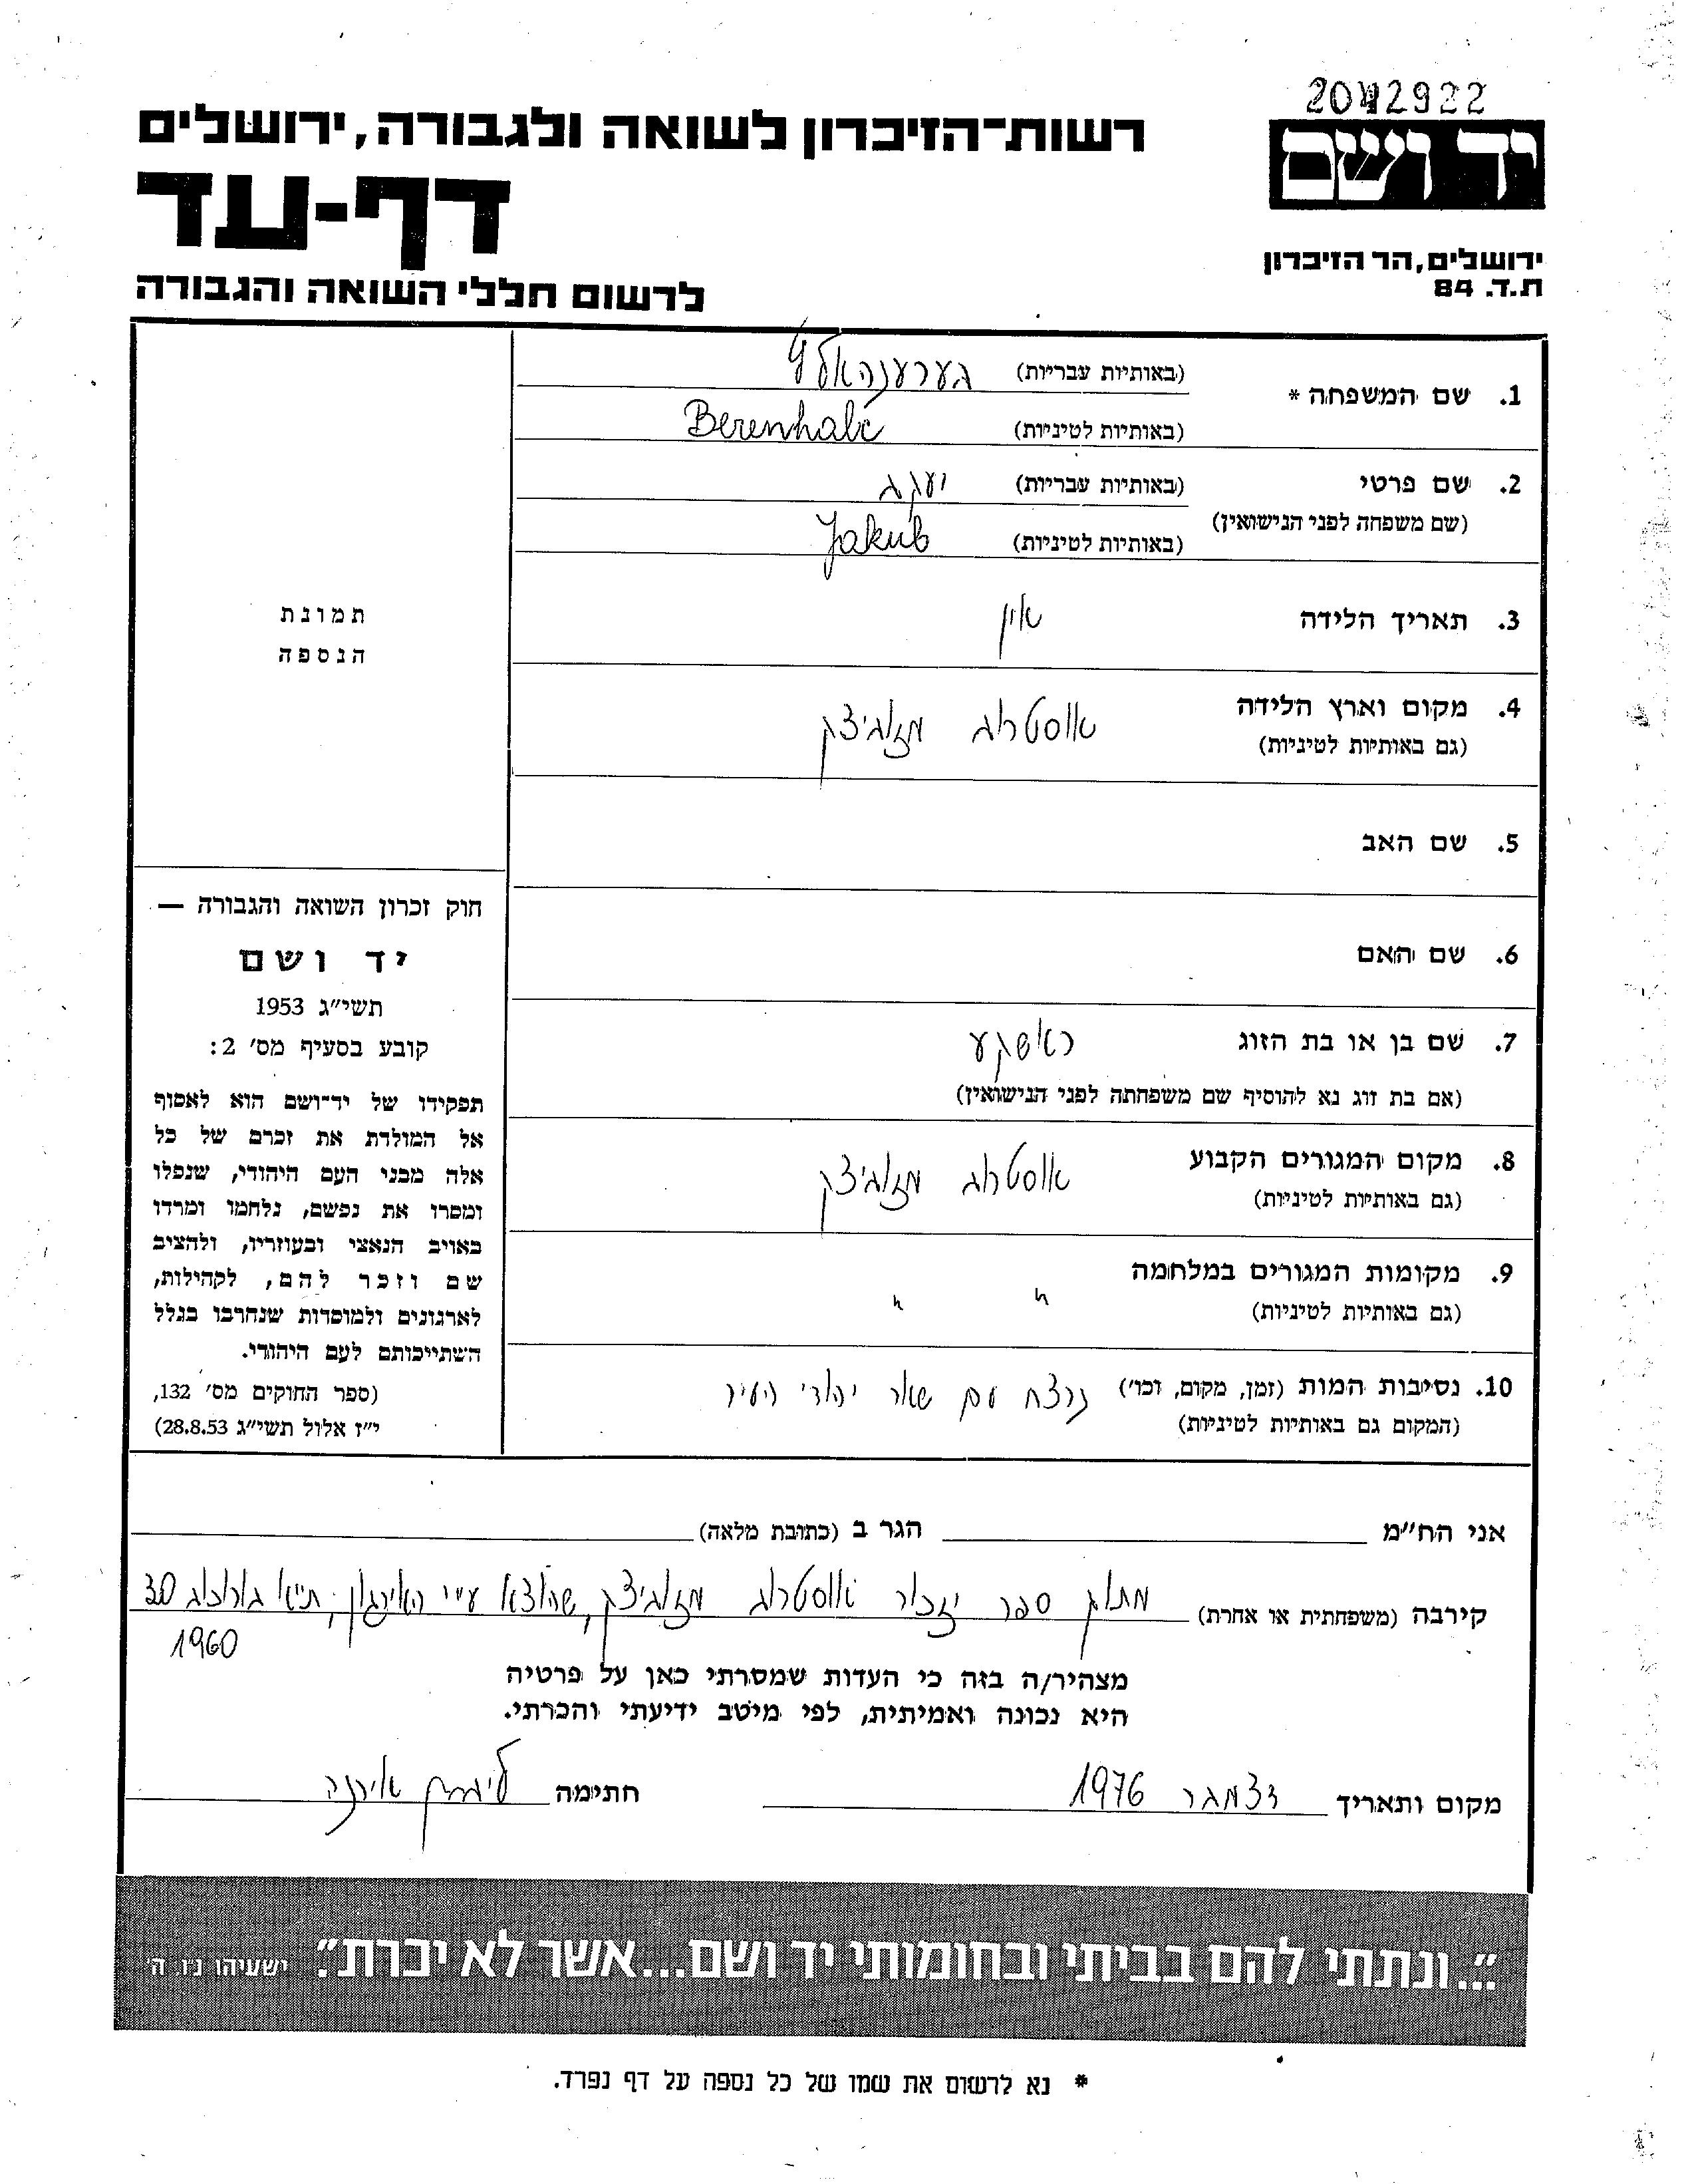 2042922
יד ושם
רשות־הזיכרון לשואה ולגבורה, ירושלים
דף-עד
ירושלים, הר הזיכרון
ת.ד. 84
לרשום חללי השואה והגבורה
1. שם המשפחה *
(באותיות עבריות)
(באותיות לטיניות) Berenhalc
2. שם פרטי
(באותיות עבריות) יעקב
(שם משפחה לפני הנישואין)
(באותיות לטיניות) Jakub
3. תאריך הלידה אין
4. מקום וארץ הלידה אוסטרוב מזוביצק
(גם באותיות לטיניות)
5. שם האב
6. שם האם
7. שם בן או בת הזוג ראשקע
(אם בת זוג נא להוסיף שם משפחתה לפני הנישואין)
8. מקום המגורים הקבוע אוסטרוב מזוביצק
(גם באותיות לטיניות)
9. מקומות המגורים במלחמה " "
(גם באותיות לטיניות)
10. נסיבות המות (זמן, מקום, וכו') נרצח עם שאר יהודי העיר
(המקום גם באותיות לטיניות)
תמונת
הנספה
חוק זכרון השואה והגבורה —
יד ושם
תשי"ג 1953
קובע בסעיף מס' 2:
תפקידו של יד־ושם הוא לאסוף
אל המולדת את זכרם של כל
אלה מבני העם היהודי, שנפלו
ומסרו את נפשם, נלחמו ומרדו
באויב הנאצי ובעוזריו, ולהציב
שם וזכר להם, לקהילות,
לארגונים ולמוסדות שנחרבו בגלל
השתייכותם לעם היהודי.
(ספר החוקים מס' 132,
י"ז אלול תשי"ג 28.8.53)
אני הח"מ הגר ב (כתובת מלאה)
קירבה (משפחתית או אחרת) מתוך ספר יזכור אוסטרוב מזוביצק, שהוצא ע"י האירגון, ת"א 30
1960
מצהיר/ה בזה כי העדות שמסרתי כאן על פרטיה
היא נכונה ואמיתית, לפי מיטב ידיעתי והכרתי.
מקום ותאריך דצמבר 1976 חתימה אירנה
"...ונתתי להם בביתי ובחומותי יד ושם...אשר לא יכרת". ישעיהו נ"ו ה'
* נא לרשום את שמו של כל נספה על דף נפרד.